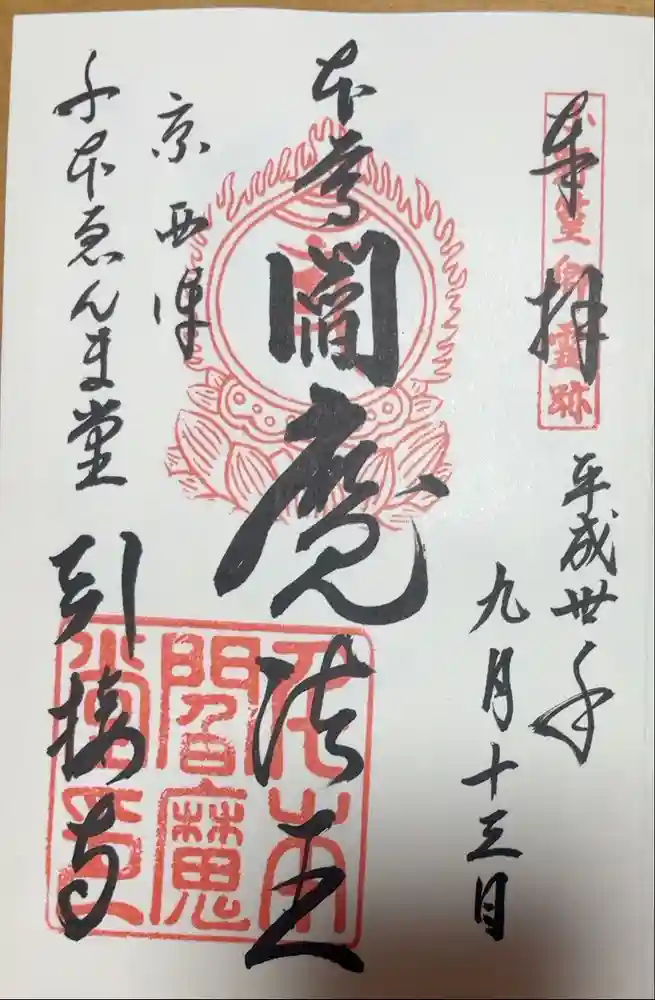 奉拝
小野篁卿霊跡
平成卅年
九月十三日
本尊
閻魔法王
京西陣
千本ゑんま堂
引接寺
千本
閻魔
堂印